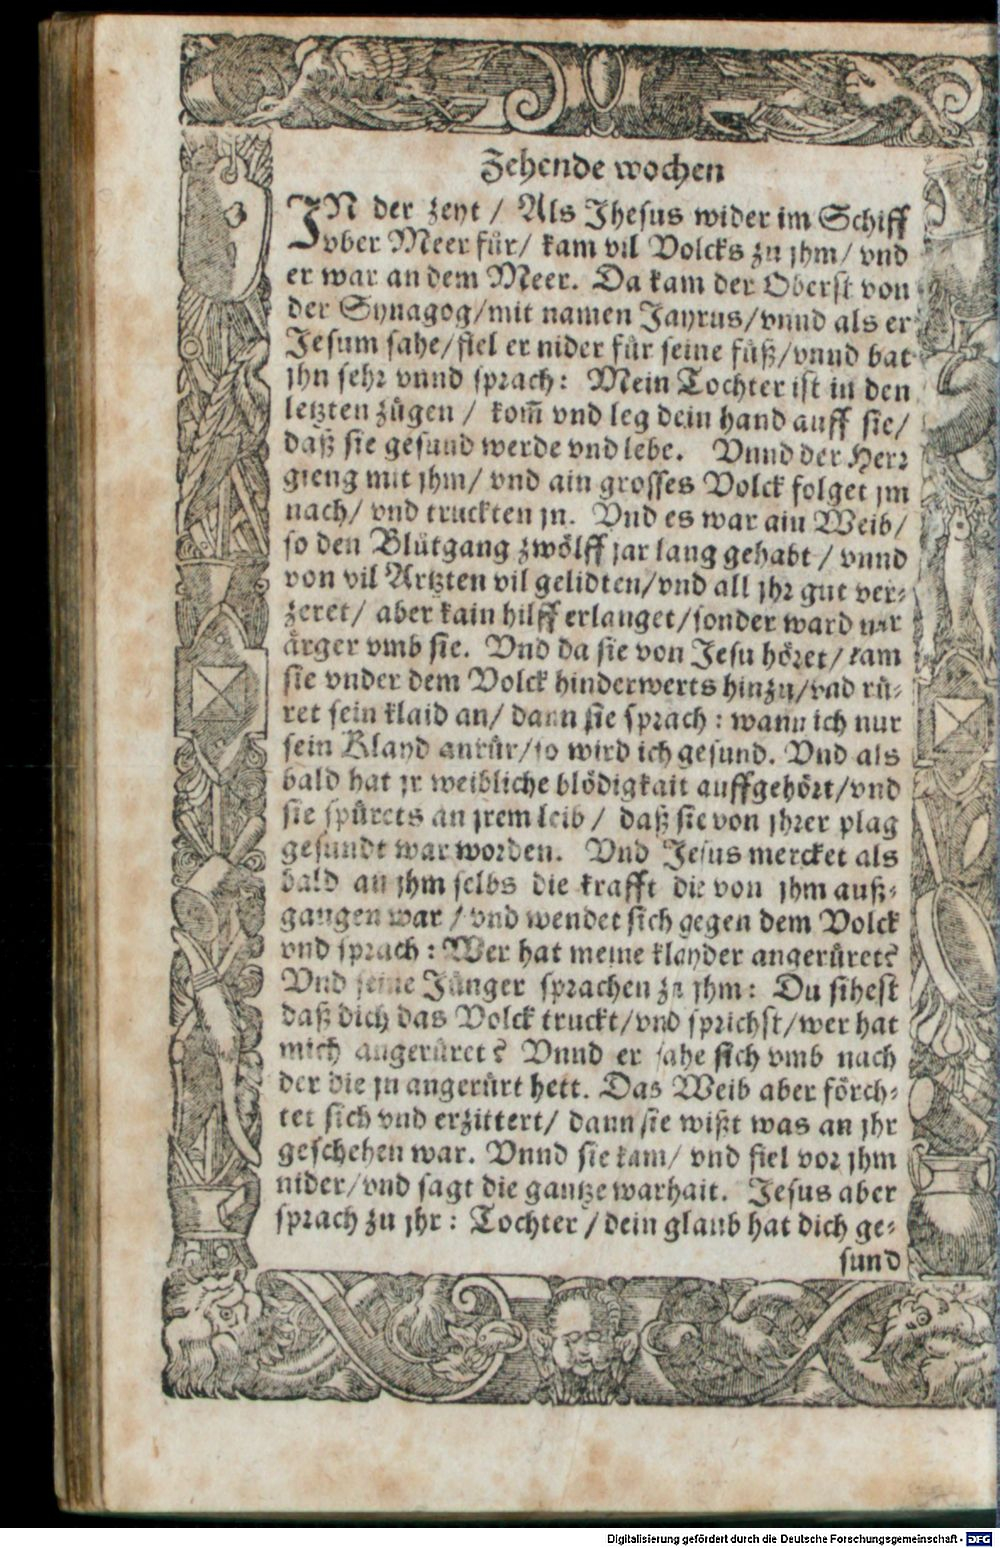 Zehende wochen
IN der zeyt / Als Jhesus wider im Schiff
vber Meer für/ kam vil Volcks zu jhm/ vnd
er war an dem Meer. Da kam der Oberst von
der Synagog/mit namen Jayrus/vnnd als er
Jesum sahe/fiel er nider für seine füß/vnnd bat
jhn sehr vnnd sprach: Mein Tochter ist in den
letzten zügen / kom̃ vnd leg dein hand auff sie/
daß sie gesund werde vnd lebe. Vnnd der Herr
gieng mit jhm/ vnd ain grosses Volck folget jm
nach/ vnd truckten jn. Vnd es war ain Weib/
so den Blůtgang zwölff jar lang gehabt / vnnd
von vil Artzten vil gelidten/vnd all jhr gut ver-
zeret/ aber kain hilff erlanget/sonder ward nur
ärger vmb sie. Vnd da sie von Jesu höret/ kam
sie vnder dem Volck hinderwerts hinzu/vnd rů-
ret sein klaid an/ dann sie sprach : wann ich nur
sein Klayd anrůr/so wird ich gesund. Vnd als
bald hat jr weibliche blödigkait auffgehört/vnd
sie spürets an jrem leib / daß sie von jhrer plag
gesundt war worden. Vnd Jesus mercket als
bald an jhm selbs die krafft die von jhm auß-
gangen war / vnd wendet sich gegen dem Volck
vnd sprach : Wer hat meine klayder angerůret?
Vnd seine Jünger sprachen zu jhm: Du sihest
daß dich das Volck truckt/vnd sprichst/wer hat
mich angerůret? Vnnd er sahe sich vmb nach
der die jn angerůrt hett. Das Weib aber förch-
tet sich vnd erzittert/ dann sie wißt was an jhr
geschehen war. Vnnd sie kam/ vnd fiel vor jhm
nider/vnd sagt die gantze warhait. Jesus aber
sprach zu jhr : Tochter / dein glaub hat dich ge-
sund
Digitalisierung gefördert durch die Deutsche Forschungsgemeinschaft - DFG